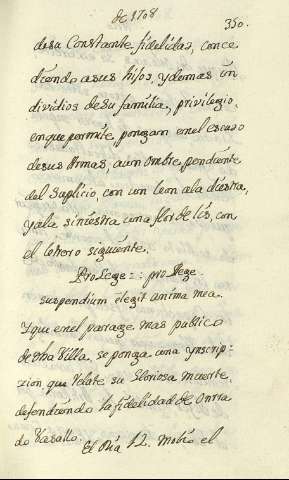 de 1708
350.
de su Constante fidelidad, conce
diendo a sus hijos, y demas in
dividios de su familia, privilegio,
en que permite, pongan en el escudo
de sus Armas, a un ombre pendiente
del Suplicio, con un leon a la diestra,
y a la siniestra una flor de lis, con
el letrero siguiente.
Pro Lege =: pro Rege.
suspendium elegit anima mea.
Y que en el parage mas publico
de dha Villa, se ponga una ynscrip-
zion que relate su Gloriosa muerte,
defendiendo la fidelidad de Onrra
do Vasallo.
El dia 12. mobio el